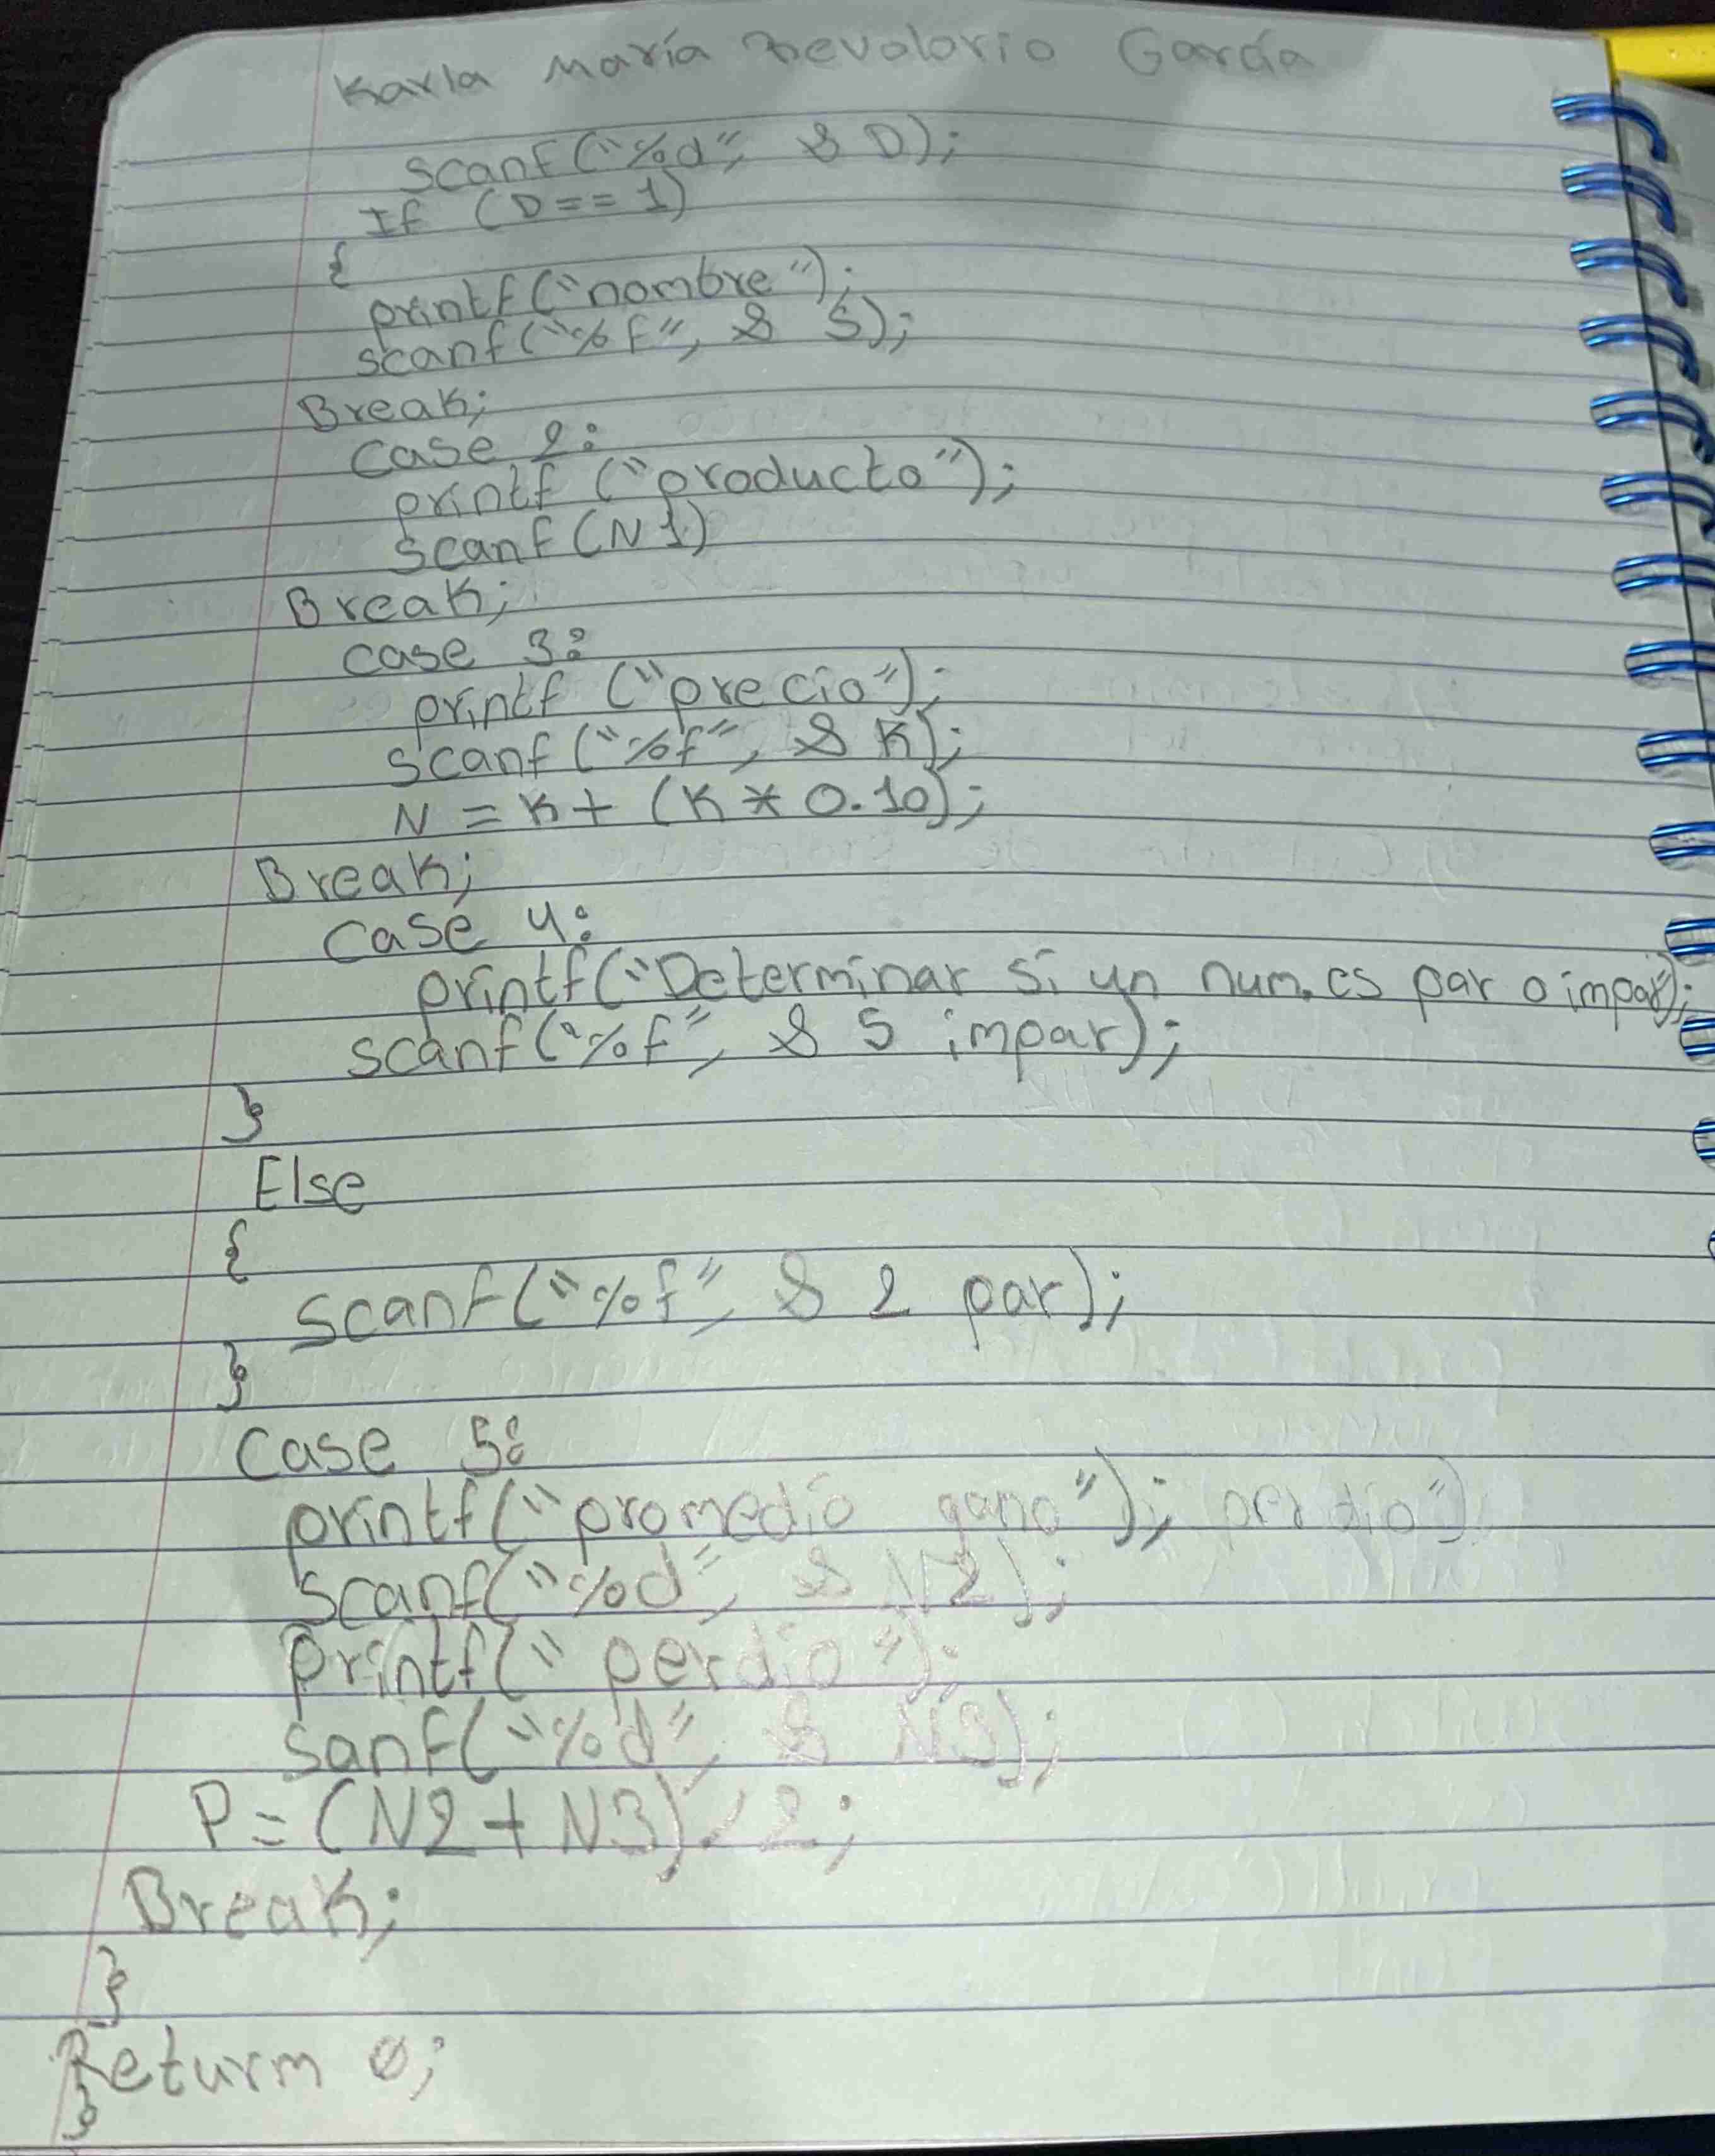 Karla María Revolorio García
scanf("%d", & D);
If (D == 1)
{
printf("nombre");
scanf("%f", & S);
Break;
case 2:
printf ("producto");
scanf(N1)
Break;
case 3:
printf ("precio");
scanf("%f", & K);
N = K + (K * 0.10);
Break;
case 4:
printf("Determinar si un num. es par o impar);
scanf("%f", & 5 impar);
}
Else
{
scanf("%f", & 2 par);
}
case 5:
printf("promedio gano"); perdio")
scanf("%d", & N2);
printf(" perdio");
sanf("%d", & N3);
P = (N2 + N3) / 2;
Break;
}
Returm 0;
}